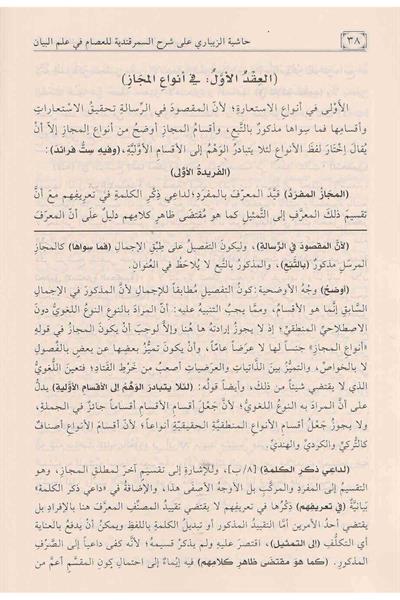 ٣٨ حاشية الزيباري على شرح السمرقندية للعصام في علم البيان
(العِقدُ الأوَّلُ: في أنواعِ المجَازِ)
الأَوْلى في أنواعِ الاستعارةِ؛ لأنَّ المقصودَ في الرِّسالةِ تحقيقُ الاسْتعاراتِ
وأقسامِها فما سِواها مذكورٌ بالتَّبعِ، وأقسامُ المجازِ أوضحُ من أنواعِ المجازِ إلاَّ أنْ
يُقالَ اِخْتارَ لفظَ الأنواعِ لئلا يتبادرَ الوَهْمُ إلى الأقسامِ الأوَّليَّةِ، (وفيهِ ستُّ فرائدَ):
(الفَريدةُ الأوْلى)
(المجَازُ المفرَدُ) قيَّدَ المعرّفَ بالمفردِ؛ لداعي ذِكْرِ الكلمةِ في تَعْريفِهم مَعَ أنَّ
تقسيمَ ذلك المعرَّفِ إلى التَّمثيلِ كما هو مُقتَضَى ظاهرِ كلامِهم دليلٌ على أنَّ المعرَّفَ
(لأنَّ المقصودَ في الرِّسالةِ)، وليكونَ التفصيلُ على طِبْقِ الإجمالِ (فما سِواها) كالمجَازِ
المرسَلِ مذكورٌ (بالتَّبَعِ)، والمذكورُ بالتَّبعِ لا يُلاحَظُ في العُنوانِ.
(أوضحُ) وجْهُ الأوضحية: كونُ التفصيلِ مُطابقاً للإجمالِ لأنَّ المذكورَ في الإجمالِ
السَّابقِ إنَّما هو الأقسامُ، وممَّا يجبُ التنبيهُ عليه: أنَّ المرادَ بالنوعِ النوعُ اللغويُّ دونَ
الاصطلاحيِّ المنطقيِّ؛ إذ لا يجوزُ إرادتُهُ ها هُنا وإلاَّ لوجبَ أنْ يكونَ المجازُ في قولِهِ
«أنواعِ المجازِ» جنساً لها لا عرَضاً عامّاً، وأن يكونَ تميُّزُ بعضِها عن بعضٍ بالفُصولِ
لا بالخواصِّ، والتمييزُ بينَ الذَّاتياتِ والعرَضِيَّاتِ أصعبُ من خَرْطِ القَتادِ؛ فتعينَ اللغويُّ
الذي لا يقتضي شيئاً من ذلك، وأيضاً قولُه: (لئلا يتبادرَ الوَهْمُ إلى الأقسامِ الأوليةِ) يدلُّ
على أنَّ المرادَ به النوعُ اللغويُّ؛ لأنَّ جَعْلَ أقسامِ الأقسامِ أقساماً جائزٌ في الجملةِ،
ولا يجوزُ جعلُ أقسامِ الأنواعِ المنطقيَّةِ الحقيقيَّةِ أنواعاً؛ لأنَّ أقسامَ الأنواعِ أصنافٌ
كالتُّركيِّ والكرديِّ والهنديِّ.
(لداعي ذكرِ الكلمةِ) [٨/ب]، وللإشارةِ إلى تقسيمٍ آخرَ لمطلقِ المجازِ، وهو
التقسيمُ إلى المفردِ والمركَّبِ بل الأوجهُ أصفى هذا، والإضافةُ في «داعي ذكرِ الكلمة»
بيانيَّةٌ (في تعريفِهم) ذِكْرُها في تعريفِهم لا يقتضي تقييدَ المصنِّفِ المعرَّفَ هنا بالإفرادِ بل
يقتضي أحدَ الأمرينِ أمَّا التقييدُ المذكورُ أو تبديلُ الكلمةِ باللفظِ ويمكنُ أنْ يدفعَ بالعنايةِ
أي التكلُّفِ (إلى التمثيلِ)، اقتصرَ عليهِ ولم يذكرْ قسيمَهُ؛ لأنَّه كفى داعياً إلى الصَّرْفِ
المذكورِ. (كما هوَ مقتضَى ظاهرِ كلامِهم) فيهِ إيْماءٌ إلى احتمالِ كونِ المقسَّمِ أعمَّ من